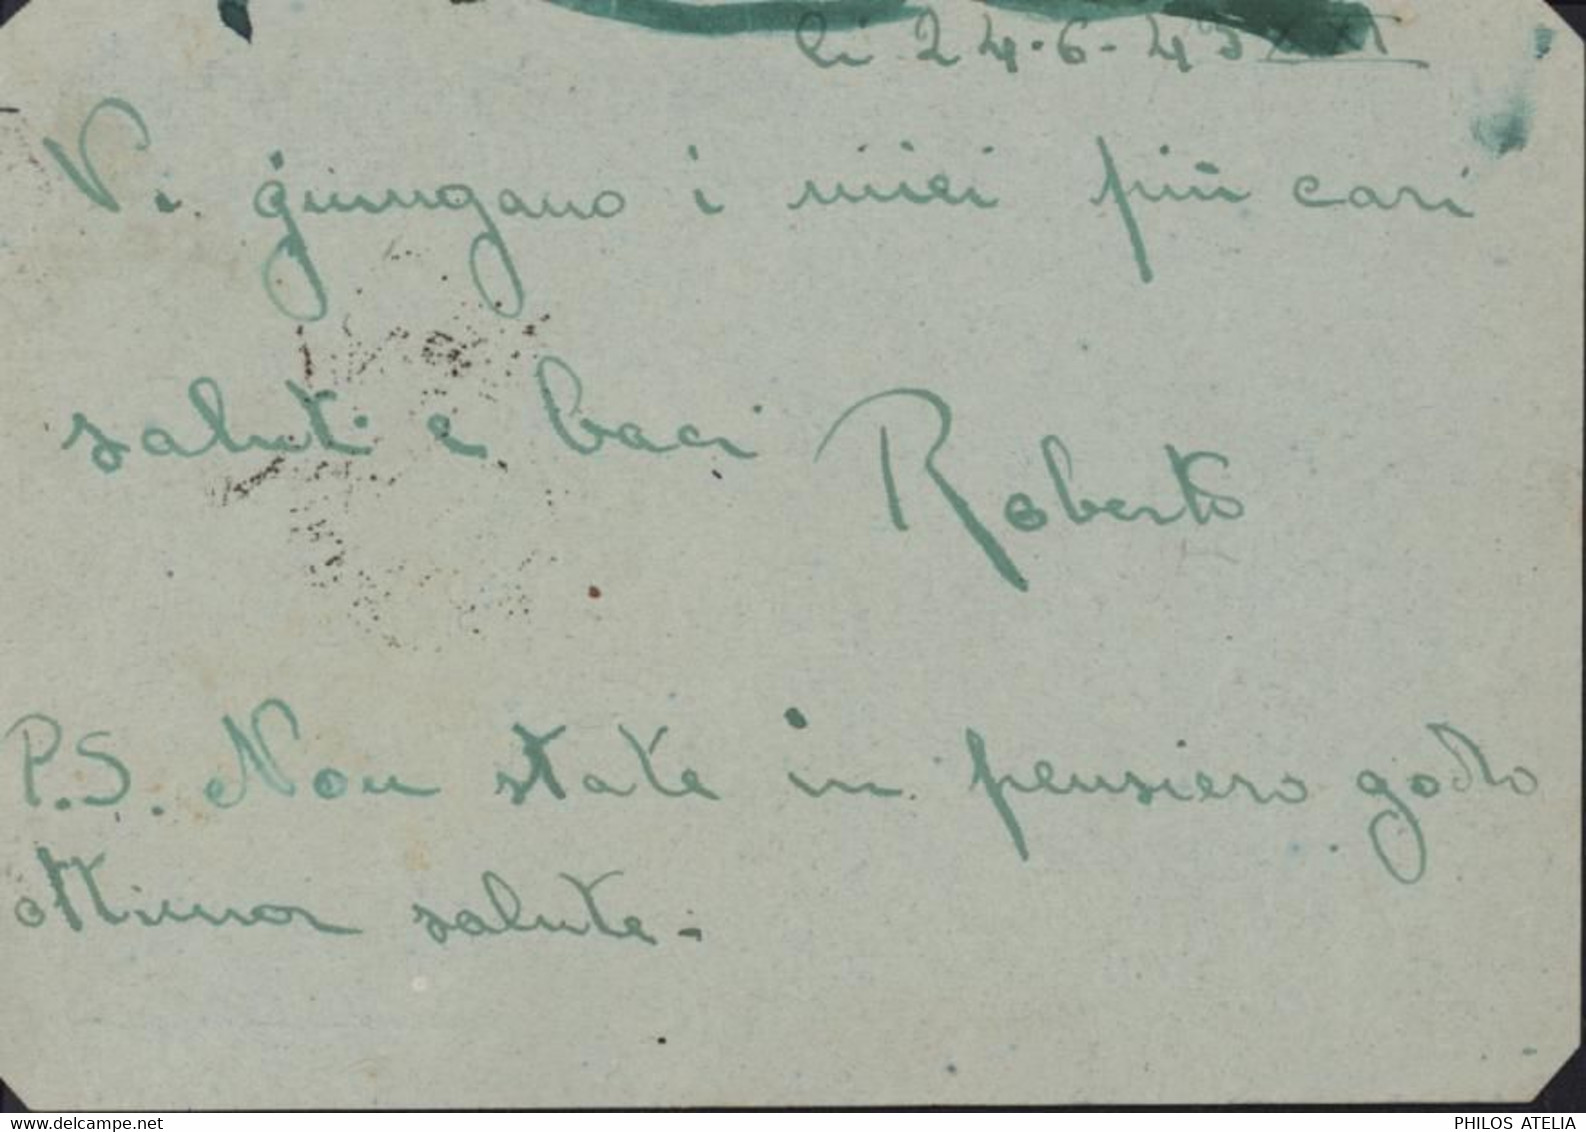 li 24-6-43 XXI
Vi giungano i miei più cari
saluti e baci Roberto
P.S. Non state in pensiero godo
ottima salute -
PHILOS ATELIA